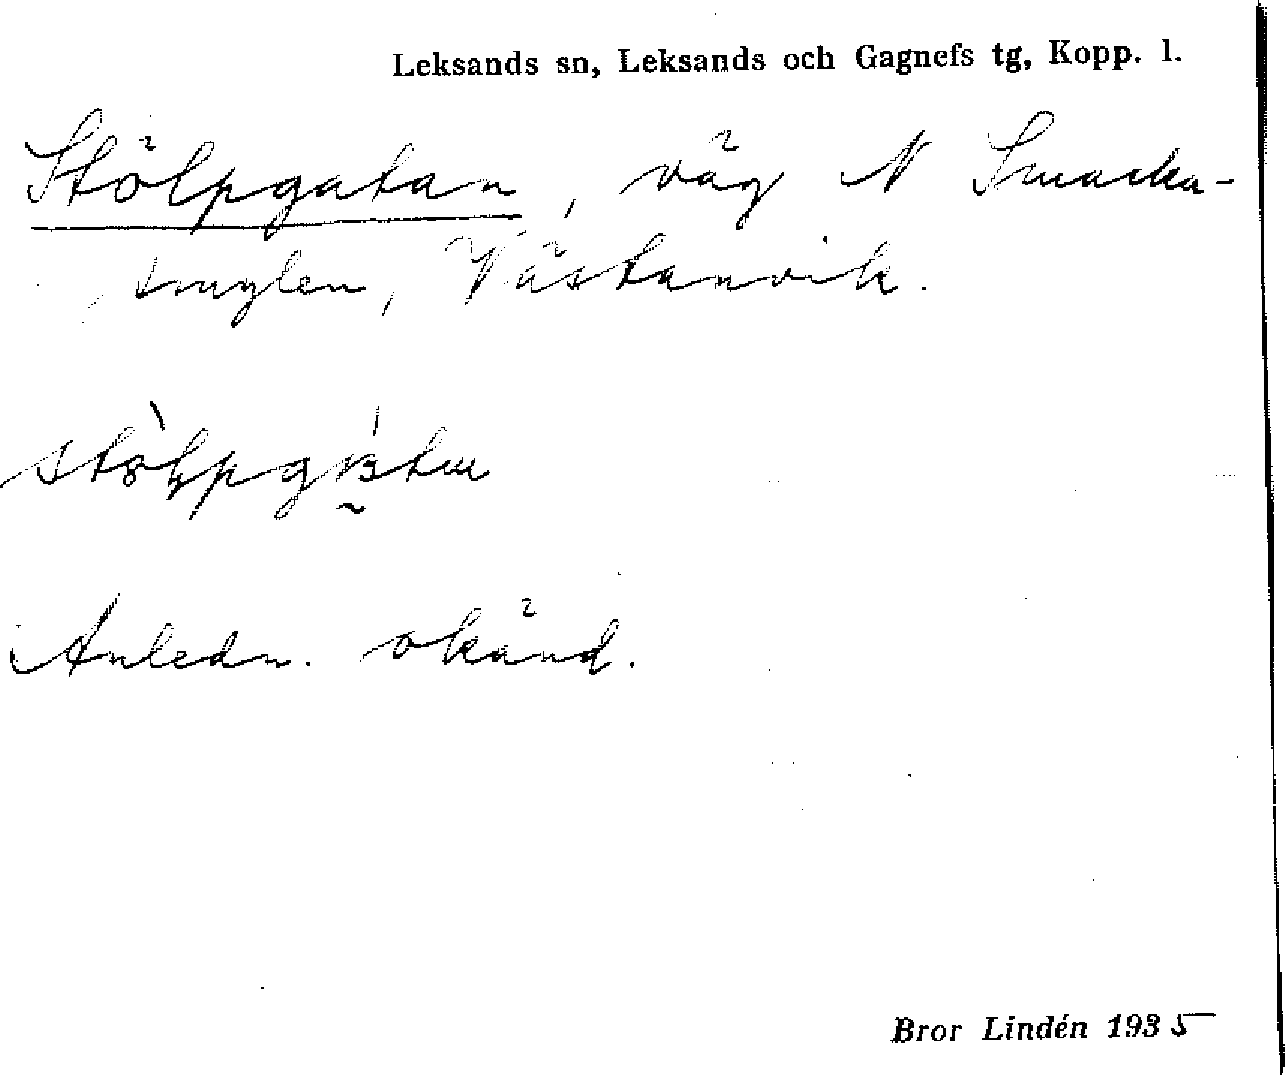 Leksands sn, Leksands och Gagnefs tg, Kopp. l.
Stölpgatan, väg N Smacka-
smylen, Västanvik.
Anledn. okänd.
Bror Lindén 1935